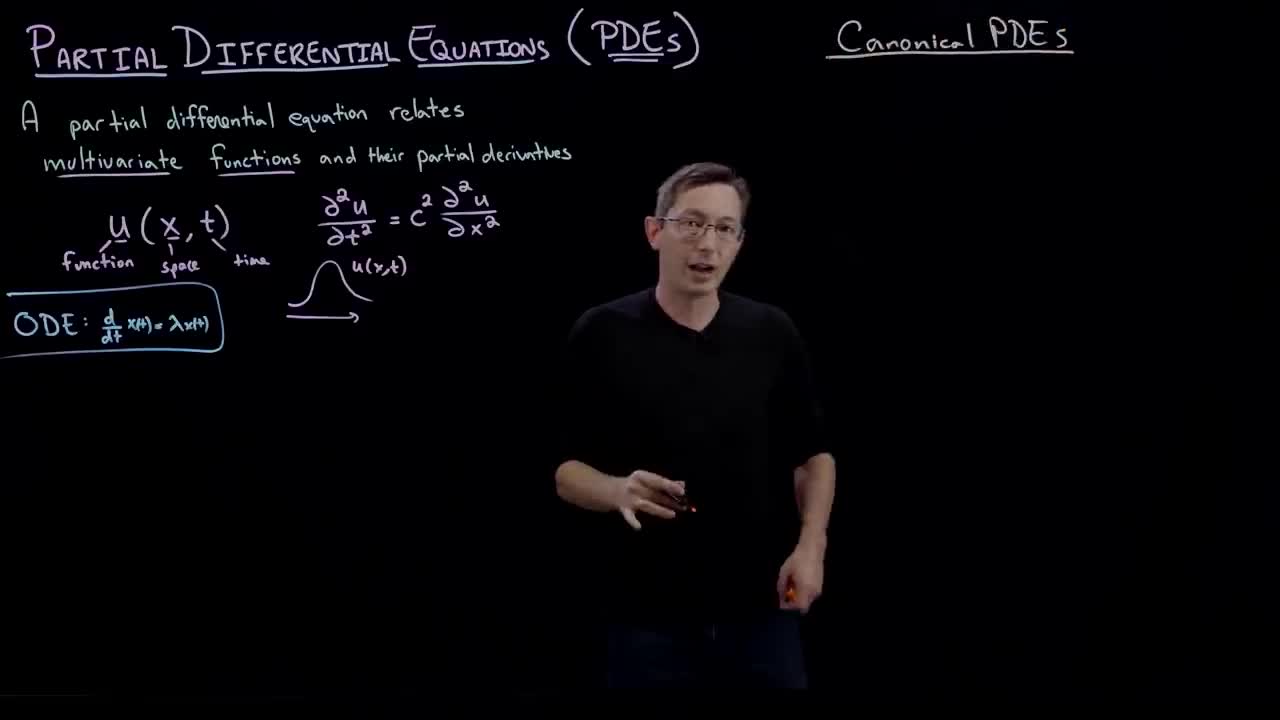 PARTIAL DIFFERENTIAL EQUATIONS (PDEs)
A partial differential equation relates
multivariate functions and their partial derivatives
u(x,t)
function space time
∂²u/∂t² = c² ∂²u/∂x²
u(x,t)
ODE: d/dt x(t) = λx(t)
Canonical PDEs